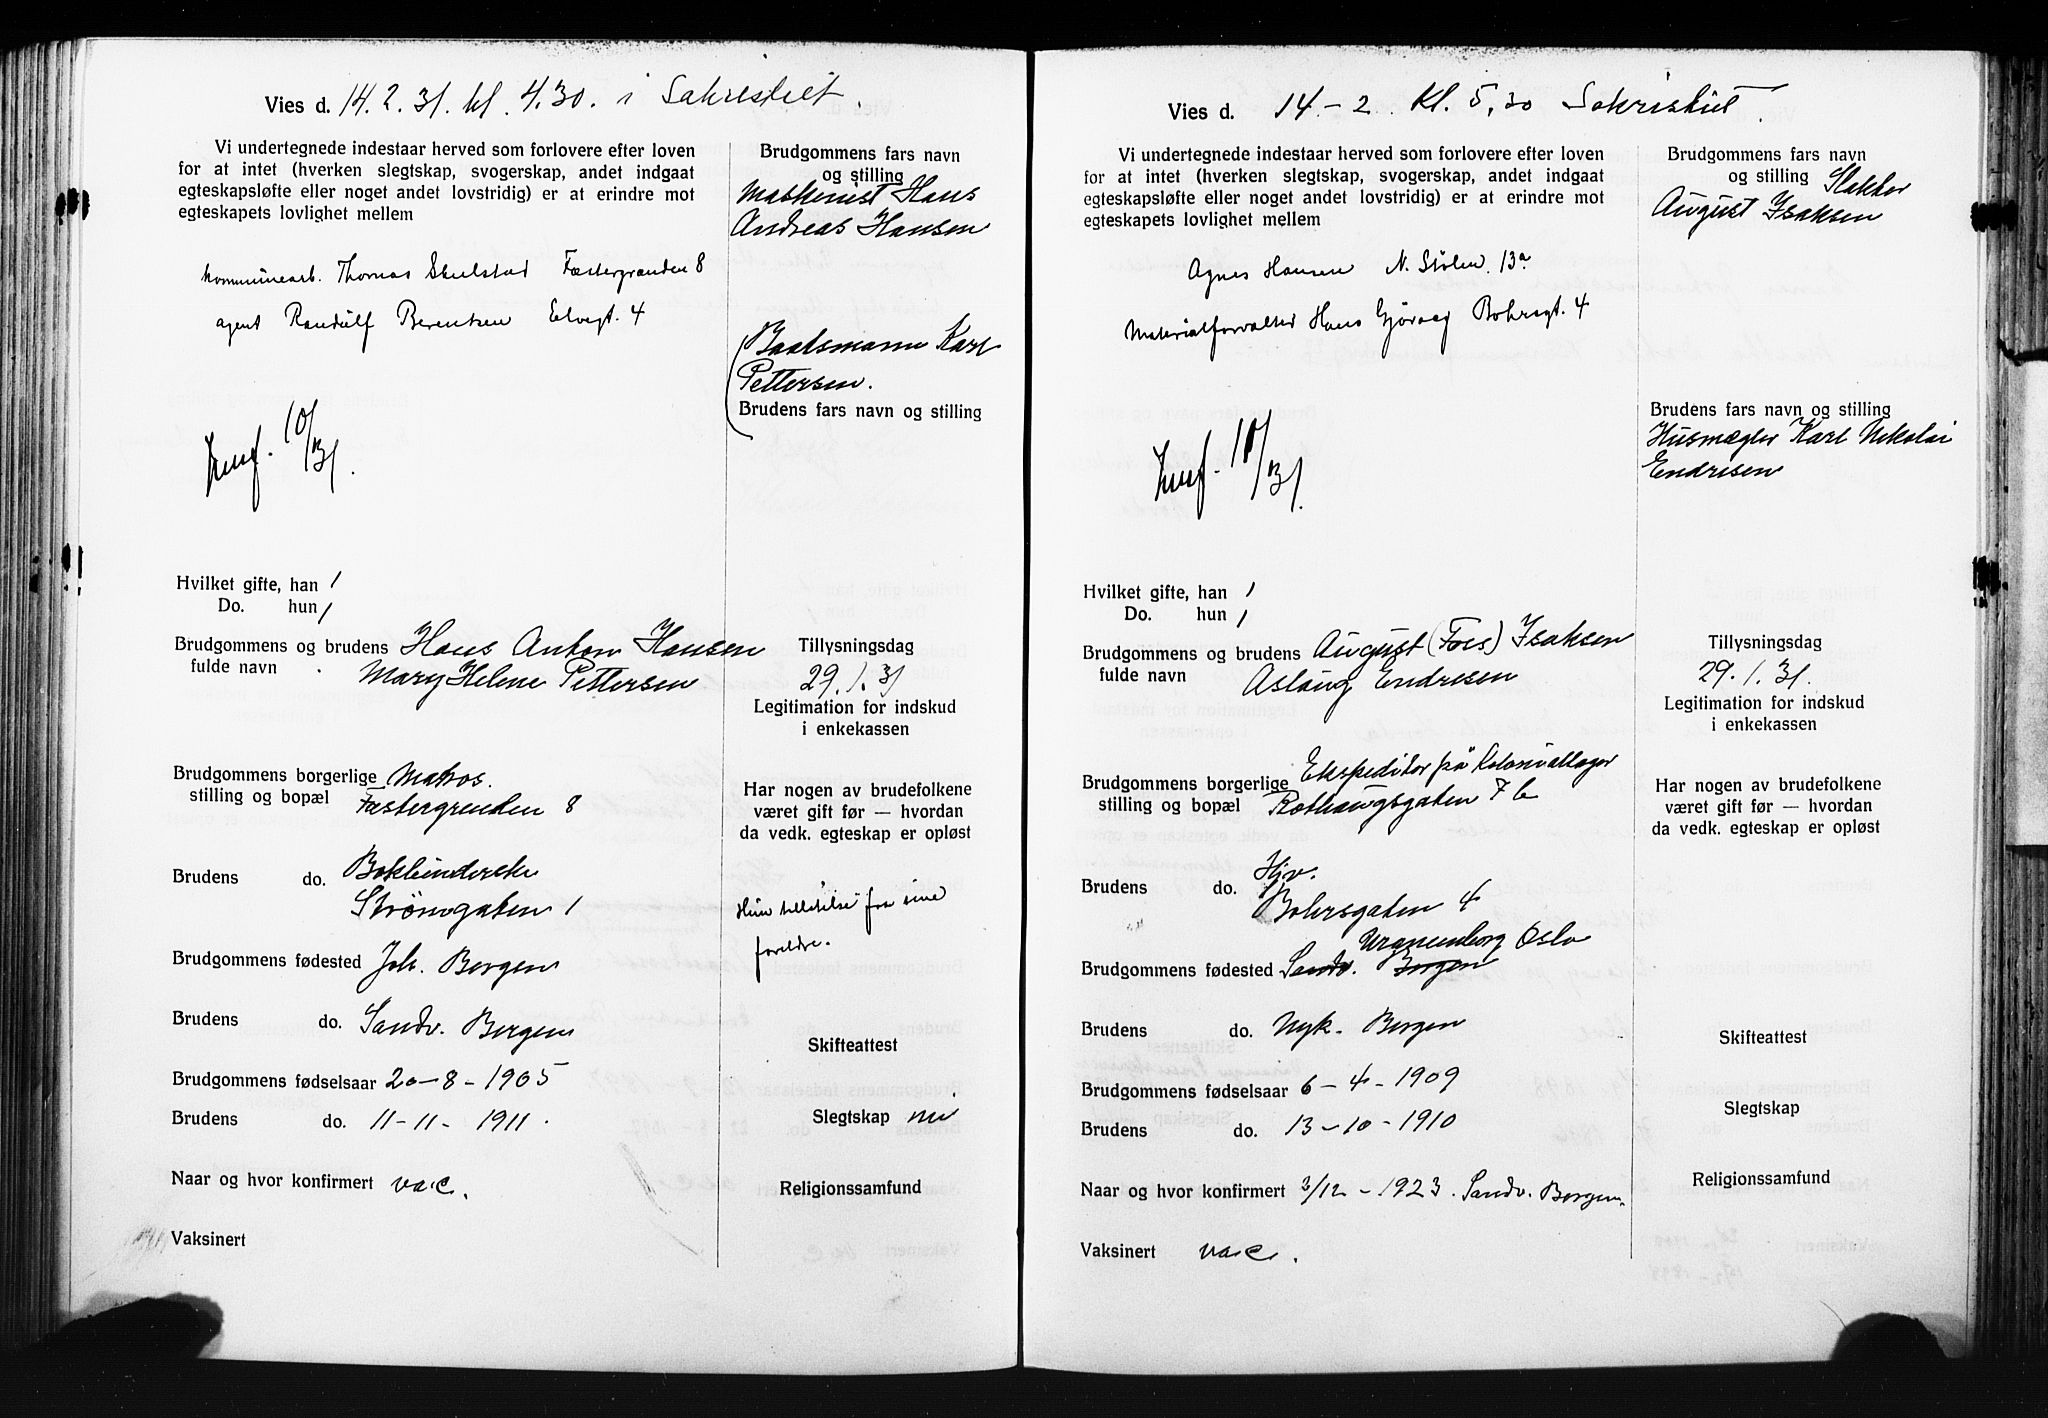 Vies d. 14.2.31. kl. 4.30. i Sakristiet.
Vi undertegnede indestaar herved som forlovere efter loven
for at intet (hverken slegtskap, svogerskap, andet indgaat
egteskapsløfte eller noget andet lovstridig) er at erindre mot
egteskapets lovlighet mellem
kommunearb. Thomas Skulstad Fæstergranden 8
agent Randulf Berentsen Elvegt. 4
10/31.
Hvilket gifte, han 1
Do. hun 1
Brudgommens og brudens Hans Anton Hansen
fulde navn Mary Helene Pettersen
Brudgommens borgerlige Matros.
stilling og bopæl Fæstergrenden 8
Brudens do. Bokbinderske
Strømgaten 1
Brudgommens fødested Joh. Bergen
Brudens do. Sandv. Bergen
Brudgommens fødselsaar 20-8-1905
Brudens do. 11-11-1911.
Naar og hvor konfirmert vac.
Vaksinert
Brudgommens fars navn
og stilling
Maskinist Hans
Andreas Hansen
Baatsmann Karl
Pettersen.
Brudens fars navn og stilling
Tillysningsdag
29.1.31
Legitimation for indskud
i enkekassen
Har nogen av brudefolkene
været gift før — hvordan
da vedk. egteskap er opløst
Hun tilladelse fra sine
foreldre.
Skifteattest
Slegtskap nei
Religionssamfund
Vies d. 14-2 Kl. 5,30 Sakristiet.
Vi undertegnede indestaar herved som forlovere efter loven
for at intet (hverken slegtskap, svogerskap, andet indgaat
egteskapsløfte eller noget andet lovstridig) er at erindre mot
egteskapets lovlighet mellem
Agnes Hansen N. Stølen 13a
Materialforvalter Hans Gjøvaag Bohrsgt. 4
Hvilket gifte, han 1
Do. hun 1
Brudgommens og brudens August (Foss) Isaksen
fulde navn Aslaug Endresen
Brudgommens borgerlige Ekspeditor på Koloniallager
stilling og bopæl Rothaugsgaten 7b
Brudens do. Hjv.
Bohrsgaten 4
Uranienborg Oslo
Brudgommens fødested Sandv. Bergen
Brudens do. Nyk. Bergen
Brudgommens fødselsaar 6-4-1909
Brudens do. 13-10-1910
Naar og hvor konfirmert 2/12-1923. Sandv. Bergen.
Vaksinert vac.
Brudgommens fars navn
og stilling Slakter
August Isaksen
Brudens fars navn og stilling
Husmægler Karl Nikolai
Endresen
Tillysningsdag
29.1.31.
Legitimation for indskud
i enkekassen
Har nogen av brudefolkene
været gift før — hvordan
da vedk. egteskap er opløst
Skifteattest
Slegtskap
Religionssamfund